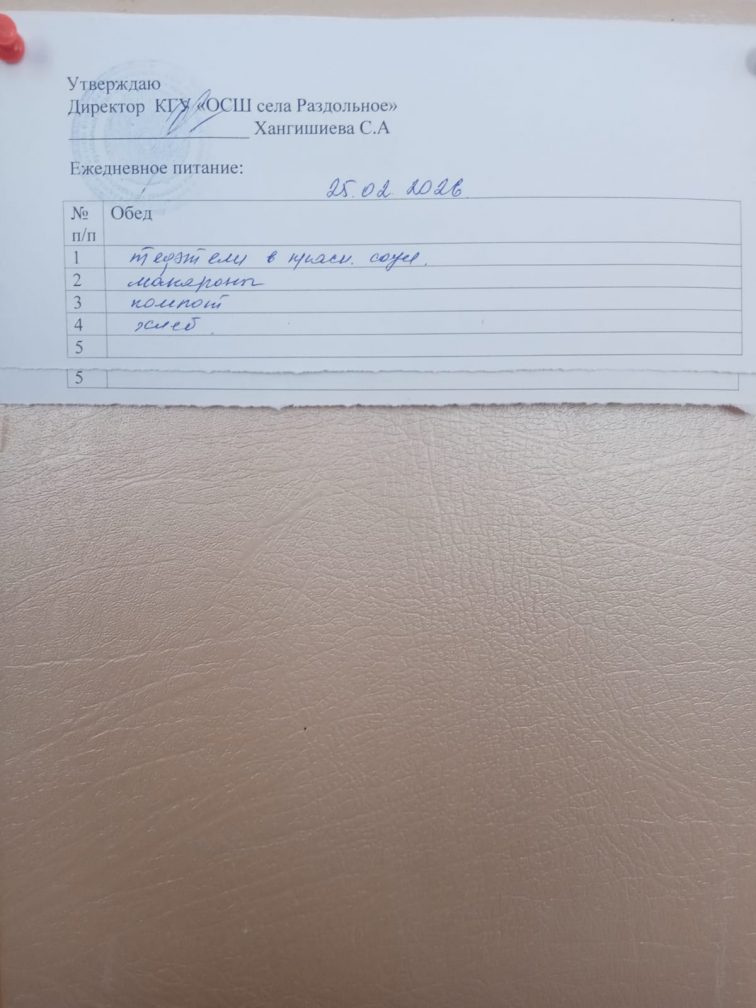 Утверждаю
Директор КГУ «ОСШ села Раздольное»
Хангишиева С.А
Ежедневное питание:
25.02.2026
№ п/п Обед
1 тефтели в красн. соусе.
2 макароны
3 компот
4 хлеб.
5
5